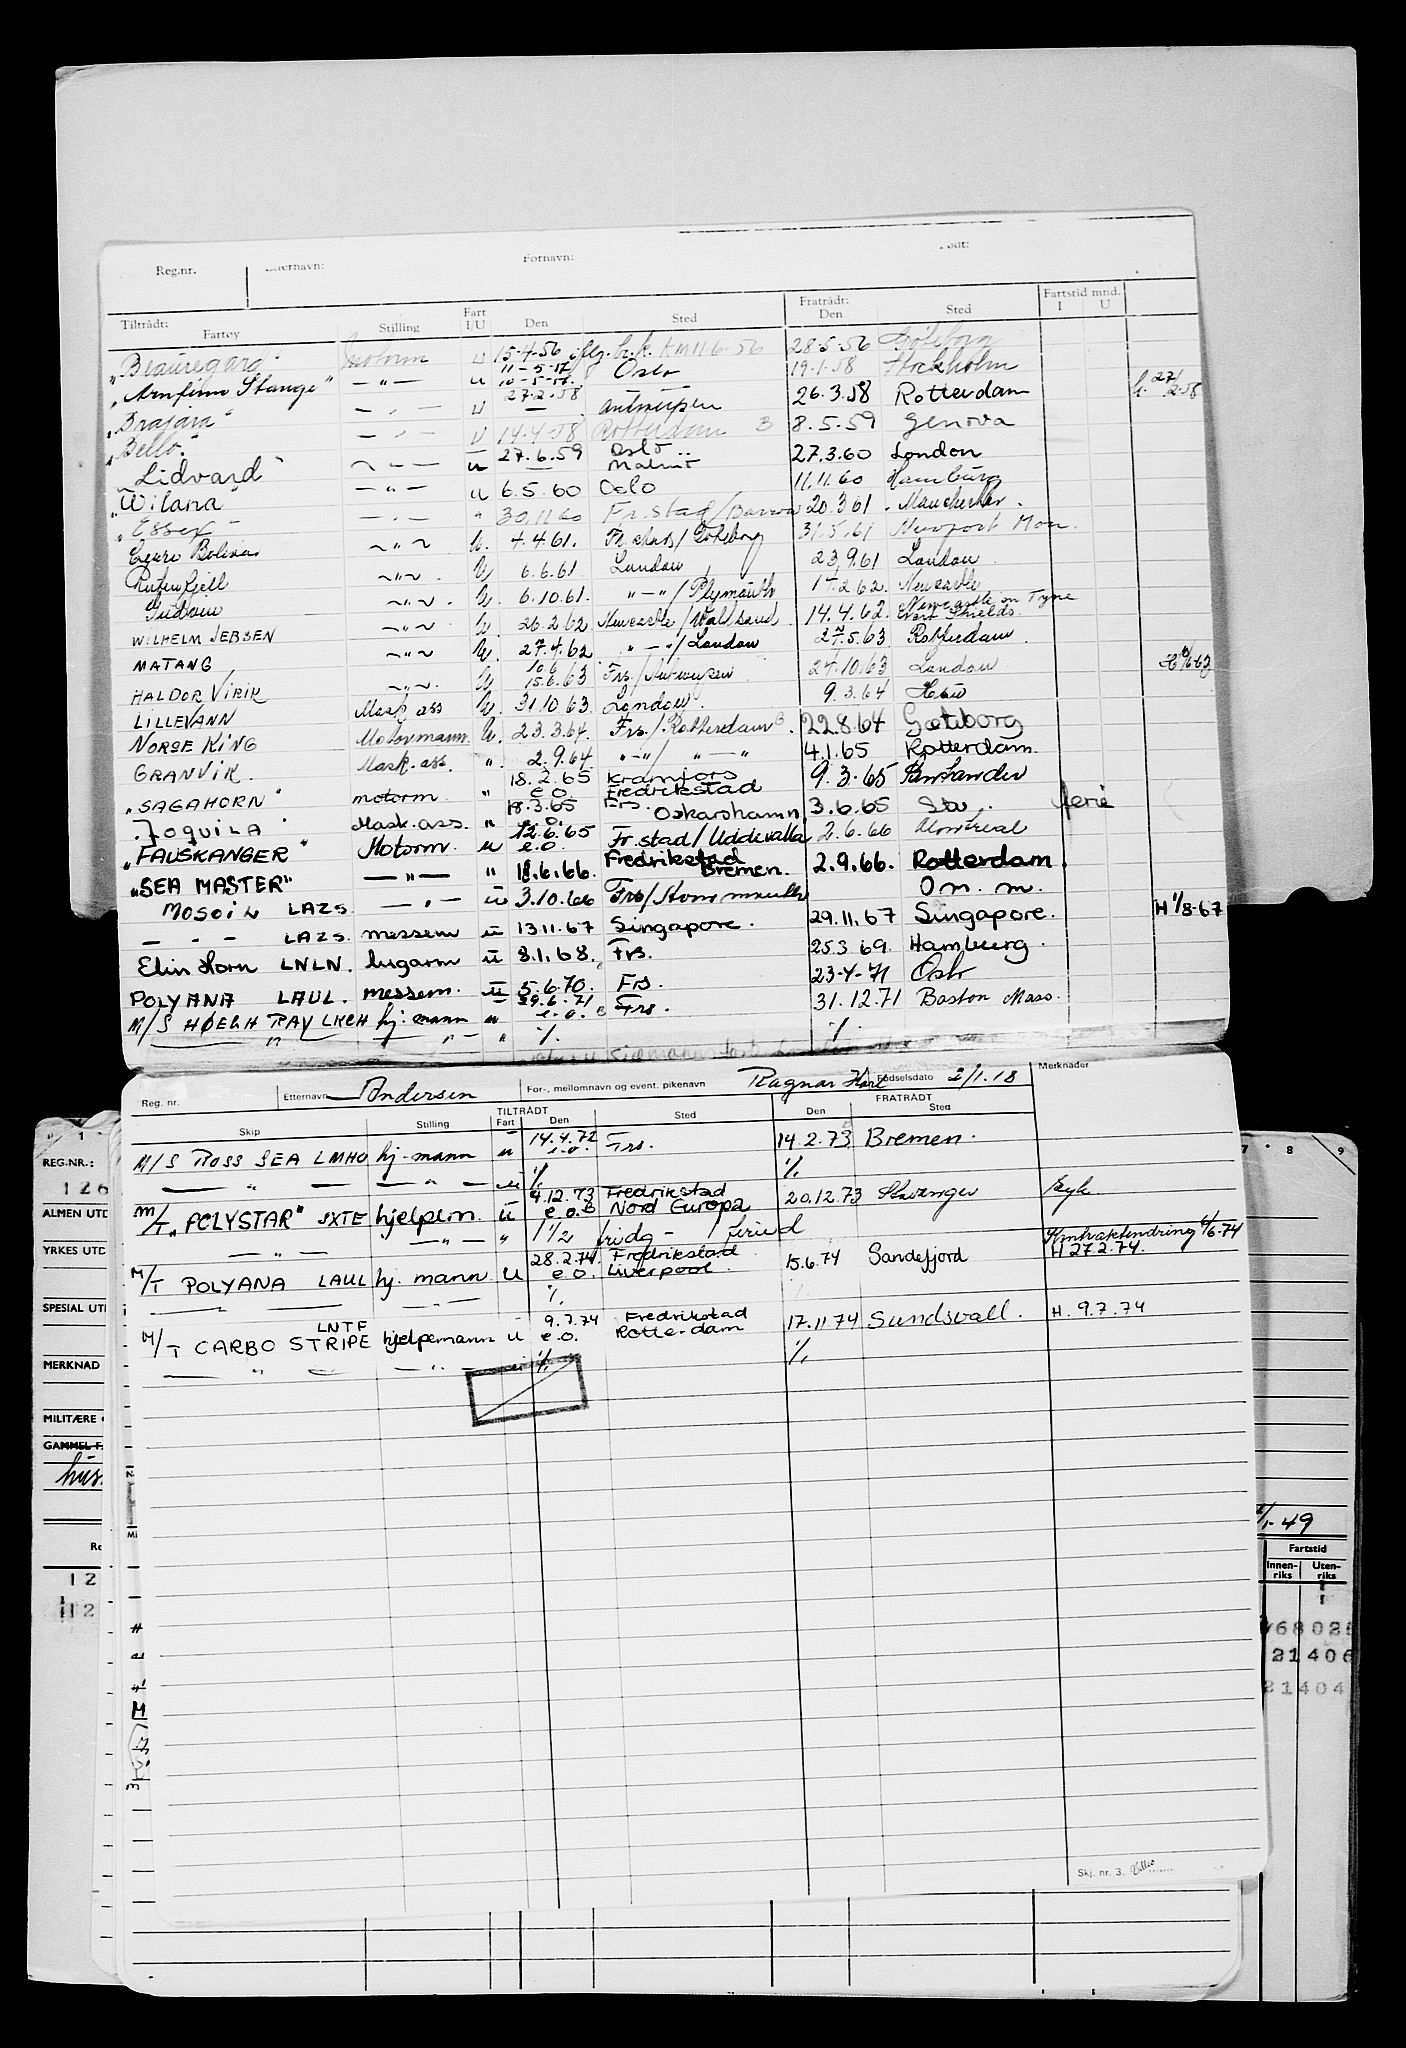 Reg.nr. Etternavn: Fornavn: Født:
Tiltrådt: Fratrådt: Fartstid mnd.
Fartøy Stilling Fart I/U Den Sted Den Sted I U
"Beauregard" Motorm u 15-4-56 iflg. br.k. KM 11-6-56 28-5-56 Göteborg
"Arnfinn Stange" —"— u 11-5-57 10-5-57 Oslo 19-1-58 Stockholm
"Brajara" —"— u 27-2-58 Antwerpen 26.3.58 Rotterdam h. 27/2-58
"Bello" —"— u 14-4-58 Rotterdam B 8.5.59 Genova
"Lidvard" —"— u 27.6.59 Oslo Malmö 27.3.60 London
"Wilana" —"— u 6.5.60 Oslo 11.11.60 Hamburg
"Essex" —"— " 30.11.60 Fr.stad/Barrow 20.3.61 Manchester.
Bolivar ~"~ U. 4.4.61. Fr.stad/Göteborg 31.5.61 Newport Mon.
Ruten fjell ~"~ U 6.6.61 London 23.9.61 London
Gudrun ~"~ U. 6.10.61. "—"/Plymouth 17.2.62. Newcastle
WILHELM JEBSEN ~"~ U. 26.2.62 Newcastle/Wallsend 14.4.62. Newcastle on Tyne North Shields.
MATANG ~"~ U. 27.4.62 "—"/London 27.5.63 Rotterdam
HALDOR VIRIK ~"~ U 10.6 15.6.63 Frs./Antwerpen 24.10.63 London H 10/6-63
LILLEVANN Mask ass U. 31.10.63. London. 9.3.64
NORSE KING Motormann. U. 23.3.64. Frs./Rotterdam B. 22.8.64 Gøteborg
GRANVIK. Mask.ass. " 2.9.64 "—"/ "—" 4.1.65 Rotterdam.
"SAGAHORN" motorm. " 18.2.65 e.o. Kramfors Fredrikstad 9.3.65
JOQUILA Mask.ass. " 18.3.65 e.o. Frs. Oskarshamn 3.6.65 ferie
"FAUSKANGER" Motorm. u 12.6.65 e.o. Fr.stad/Uddevalla 2.6.66 Montreal
"SEA MASTER" —"— " 18.6.66. Fredrikstad Bremen. 2.9.66. Rotterdam.
MOSOIL LAZS. —"— u 3.10.66 Frs/ O.m.m.
— " — LAZS. messem u 13.11.67 Singapore. 29.11.67 Singapore. H 1/8-67
Elin Horn LNLN. lugarm u 8.1.68. Frs. 25.3.69. Hamburg.
POLYANA LAUL. messem. u 5.6.70. Frs. 23-4-71 Oslo
M/S HØEGH RAY LKCH hj: mann u 29.6.71 e.o. B Frs. 31.12.71 Boston Mass.
— " — — " — " %. %.
Reg. nr. Etternavn Andersen For-, mellomnavn og event. pikenavn Ragnar Harl Fødselsdato 2/1.18 Merknader
TILTRÅDT FRATRÅDT
Skip Stilling Fart Den Sted Den Sted
M/S ROSS SEA LMHO hj-mann u 14.4.72 e.o. Frs. 14.2.73 Bremen.
— " — — " — u %. %.
M/T "POLYSTAR" JXTE hjelpem. u 4.12.73 e.o. B Fredrikstad Nord Europa 20.12.73 Stavanger syk.
— " — — " — " 1 1/2 fridg - / feried
M/T POLYANA LAUL hj. mann u 28.2.74. e.o. Fredrikstad Liverpool. 15.6.74 Sandefjord Kontraktendring 4/6-74 H 27.2.74.
— " — %.
M/T CARBO STRIPE LNTF hjelpemann u 9.7.74 e.o. Fredrikstad Rotterdam 17.11.74 Sundsvall. H. 9.7.74
— " — — " — %. %.
REG.NR.:
126
ALMEN UTD
YRKES UTD
SPESIAL UTD
MERKNAD
MILITÆRE
GAMMEL F.
hus.
12
112
7 8 9
1/1-49
Fartstid
Innen-riks Uten-riks
68028
21406
21404
Skj. nr. 3.